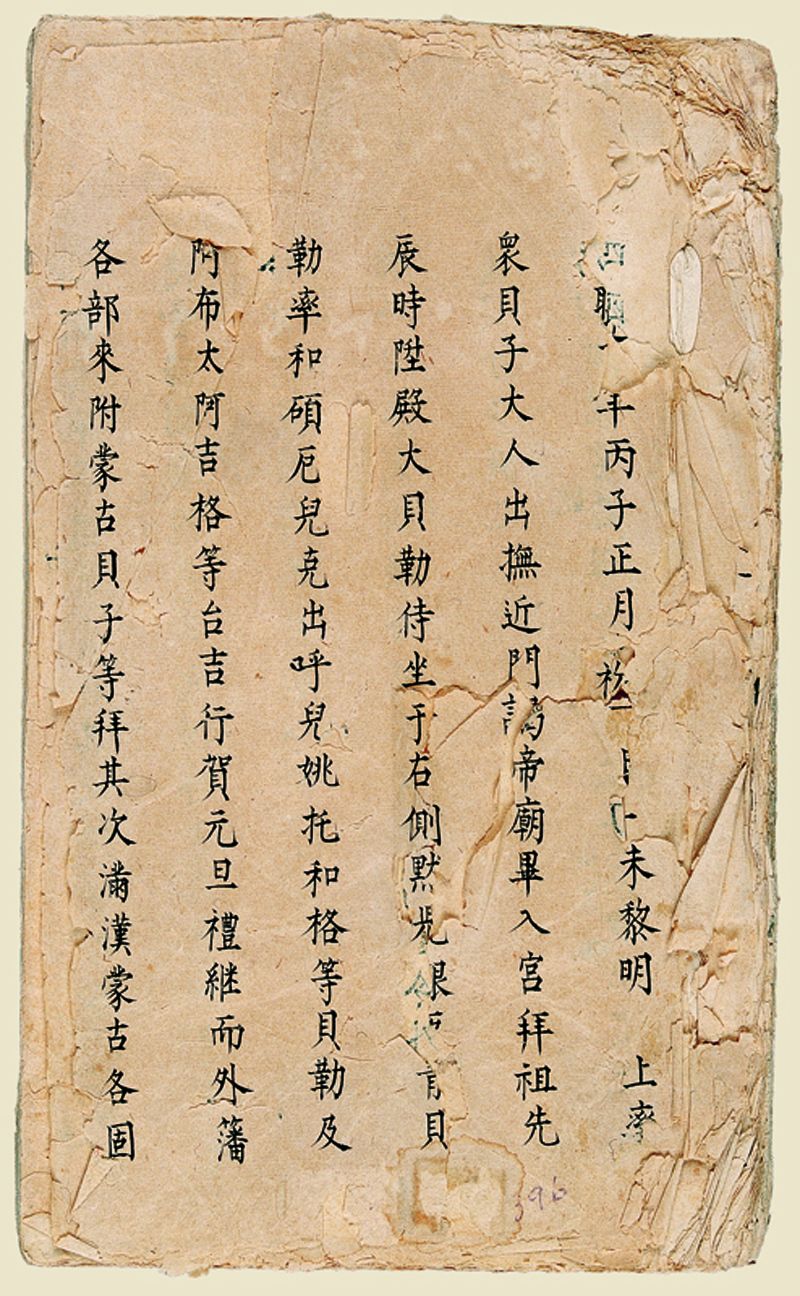 年丙子正月未黎明 上率
衆貝子大人出撫近門謁帝廟畢入宮拜祖先
辰時陞殿大貝勒侍坐于右側默貝
勒率和碩厄兒克出呼兒姚托和格等貝勒及
阿布太阿吉格等台吉行賀元旦禮継而外籓
各部來附蒙古貝子等拜其次滿漢蒙古各固
396